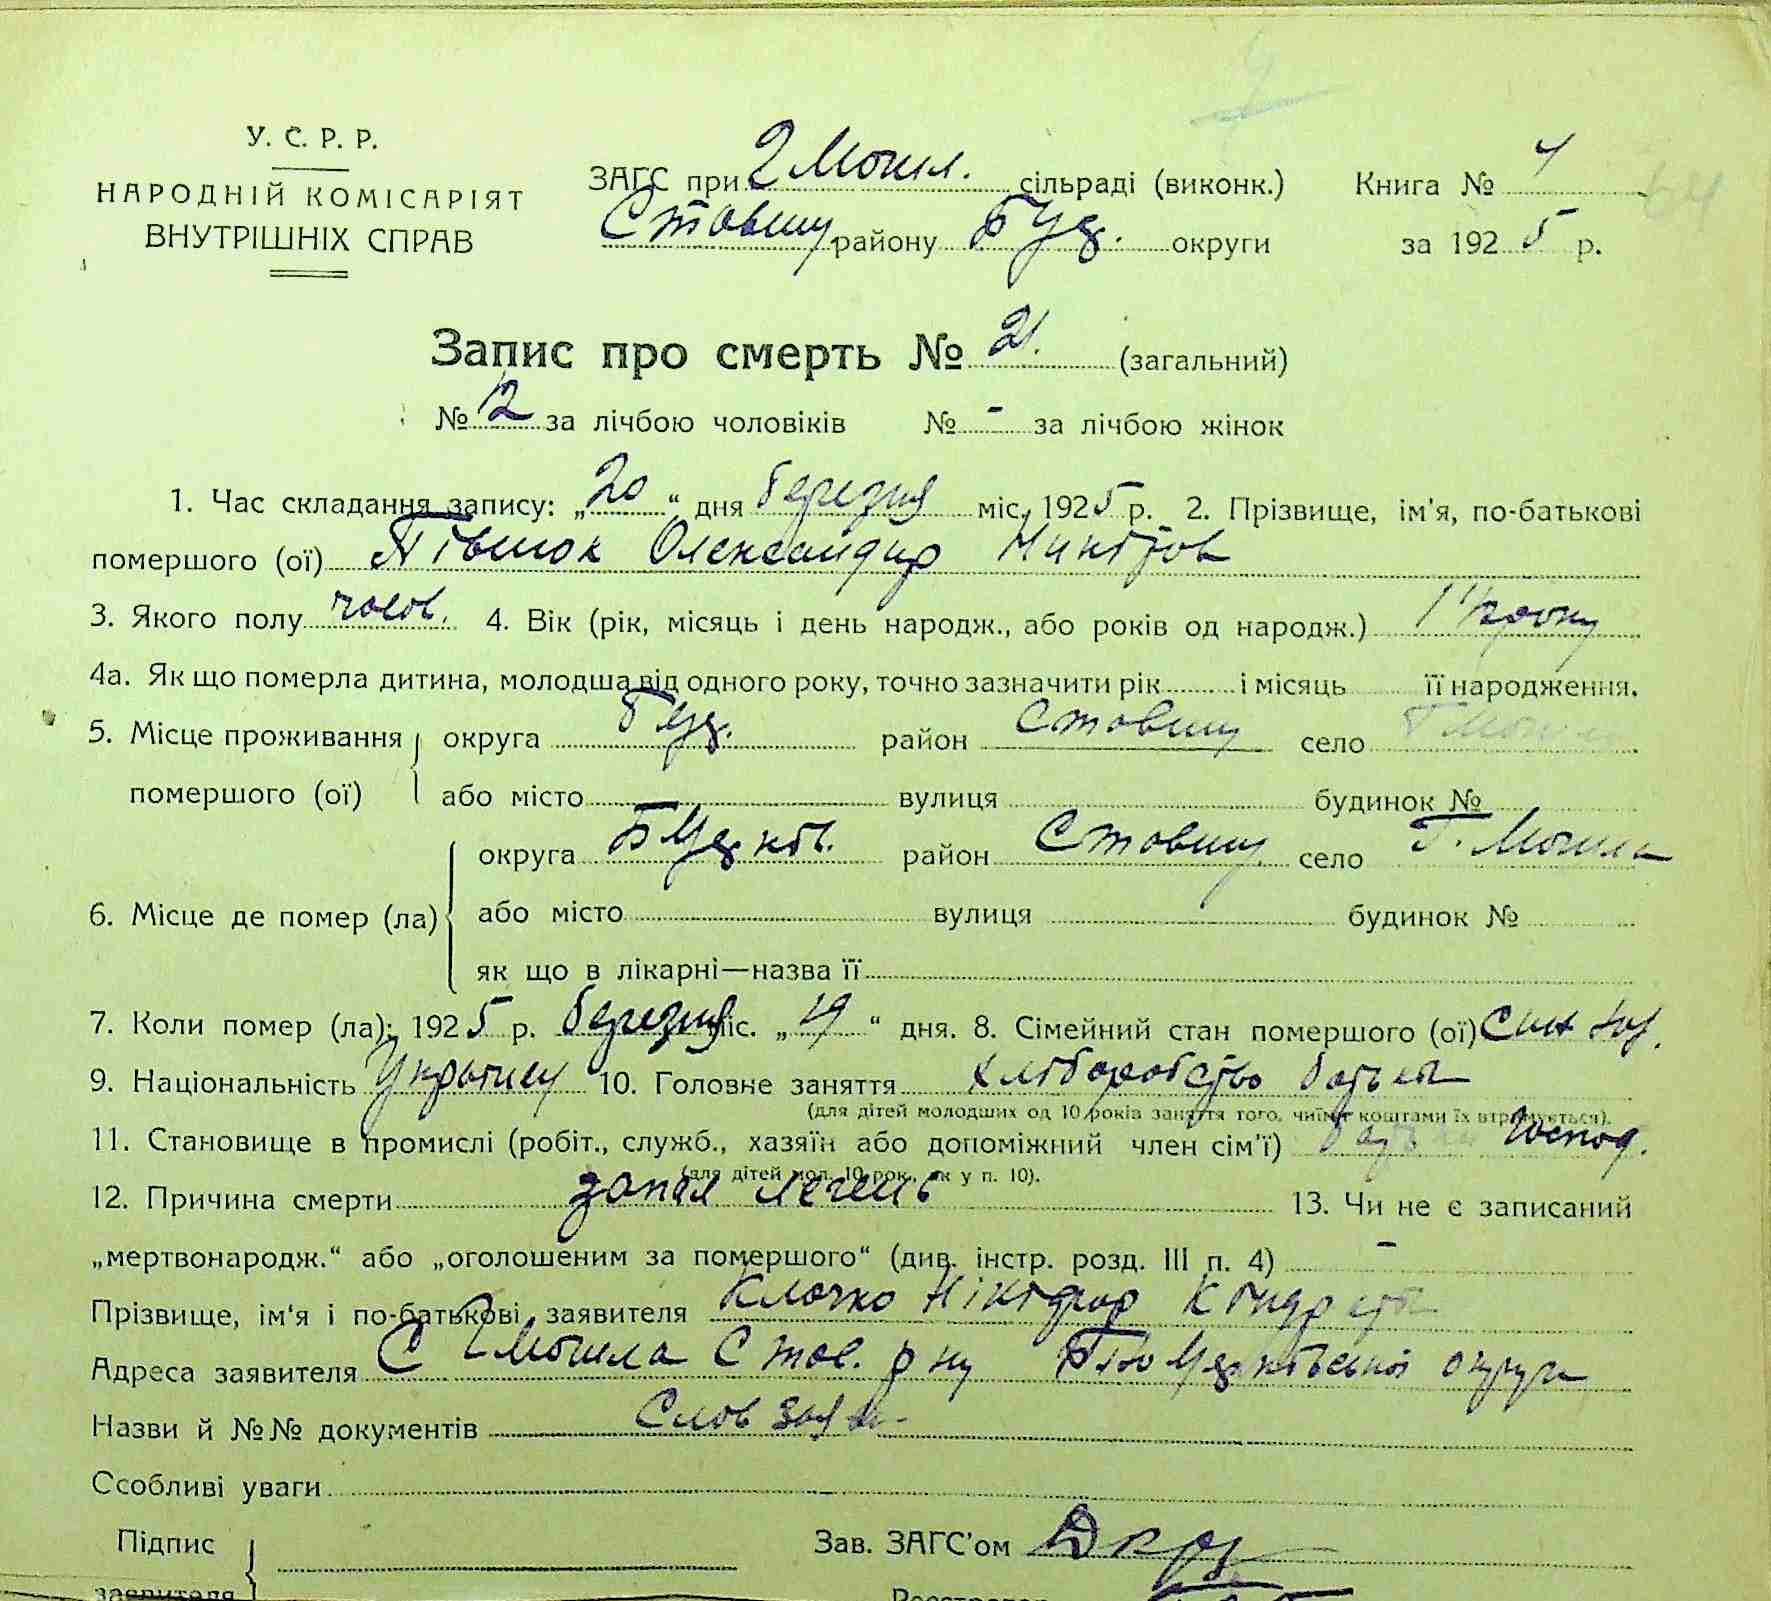 У. С. Р. Р.
НАРОДНІЙ КОМІСАРІЯТ
ВНУТРІШНІХ СПРАВ
ЗАГС при Могил. сільраді (виконк.)
Книга №
Ставищ. району БЦер. округи
за 1925 р.
Запис про смерть № 21. (загальний)
№ 12 за лічбою чоловіків № - за лічбою жінок
1. Час складання запису: „20“ дня березня міс. 1925 р. 2. Прізвище, ім'я, по-батькові
помершого (ої) Олександр
3. Якого полу чолов. 4. Вік (рік, місяць і день народж., або років од народж.) 1
4а. Як що померла дитина, молодша від одного року, точно зазначити рік і місяць її народження.
5. Місце проживання помершого (ої) округа БЦер. район Ставищ село
або місто вулиця будинок №
6. Місце де помер (ла) округа БЦерків. район Ставищ село Г. Могила
або місто вулиця будинок №
як що в лікарні—назва її
7. Коли помер (ла): 1925 р. березня міс. „19“ дня. 8. Сімейний стан помершого (ої)
9. Національність Українец 10. Головне заняття хліборобство батька
(для дітей молодших од 10 років заняття того, чиїми коштами їх втримується).
11. Становище в промислі (робіт., служб., хазяїн або допоміжний член сім'ї) господ.
(для дітей мол. 10 рок. як у п. 10).
12. Причина смерти запал легень 13. Чи не є записаний
„мертвонародж.“ або „оголошеним за помершого“ (див. інстр. розд. III п. 4) -
Прізвище, ім‘я і по-батькові заявителя Клочко Нікіфор Кіндрата
Адреса заявителя С Г Могила Став. р ну Білоцерківської округи
Назви й №№ документів Слов заяв.
Ссобливі уваги
Підпис
заявителя
Зав. ЗАГС'ом
Реєстратор